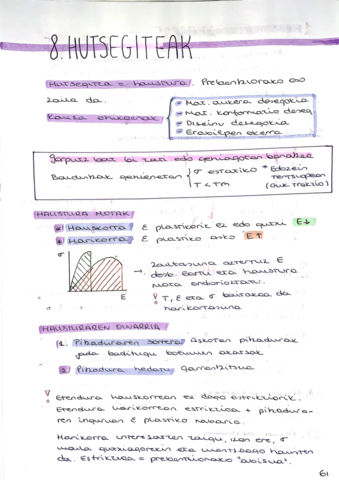 8. HUTSEGITEAK
Hutsegitea = haustura. Prebentziorako oso
zaila da.
Kausa ohikoenak
Mat. aukera desegokia
Mat. konformatio deseg.
Diseinu desegokia
Erabilpen okerra
Gorputz bat bi zati edo gehiagotan banatzea
Baldintzak gehienetan
σ estatiko
T < TM
* Edozein
tentsiopean
(Oik. traktio)
HAUSTURA MOTAK
Hauskorra ε plastikorik ez edo gutxi E↓
Harikorra ε plastiko asko E↑
σ
ε
→ Zailtasuna aztertuz E
desb. lortu eta haustura
mota ondorioztatu.
T, ε eta σ baitakoa da
harikortasuna
HAUSTURAREN DINARRIA
1. Pitzaduraren sorrera Askotan pitzadurak
jada baditugu botumen akatsak
2. Pitzadura hedatu garrantzitsua
Etendura hauskorrean ez dago estrikziorik.
Etendura harikorrean estrikzioa + pitzadura-
ren inguruan ε plastiko nabaria.
Harikorra interesatzen zaigu, izan ere, σ
maila gutxiagorekin eta
da. Estrikzioa = prebentziorako "abisua".
61